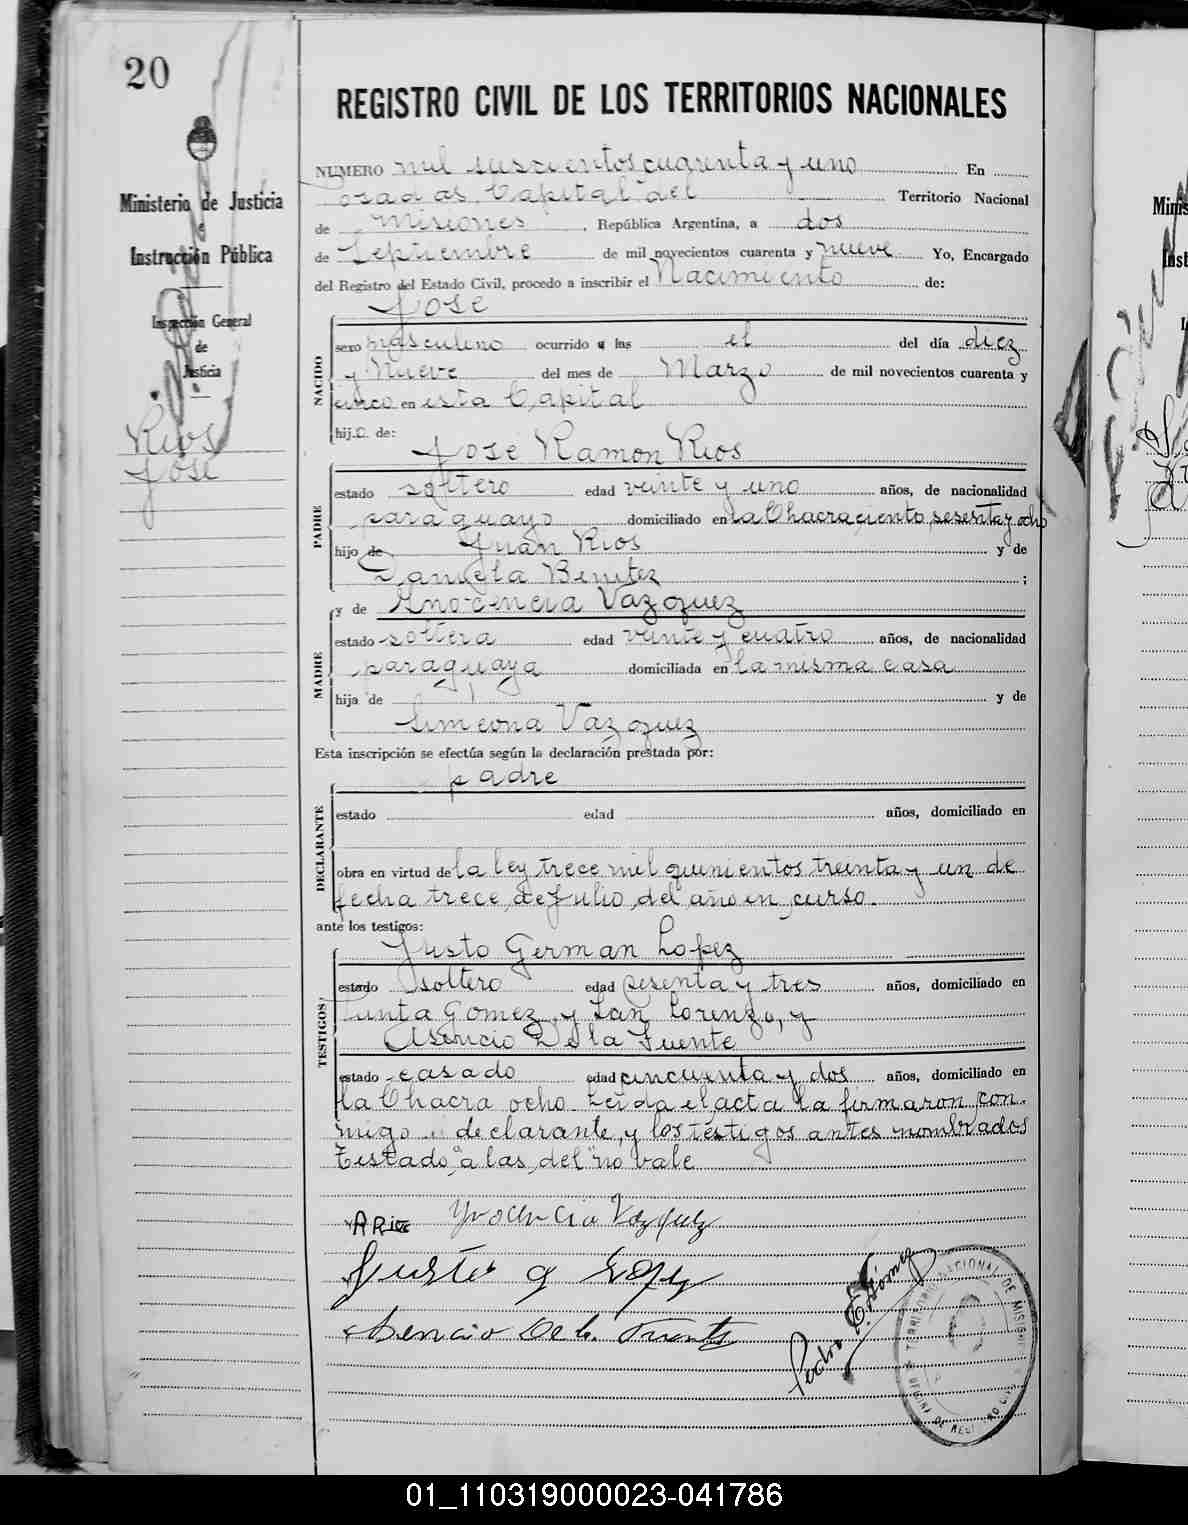 20
Ministerio de Justicia
e
Instrucción Pública
Inspección General
de
Justicia
Rios
José
REGISTRO CIVIL DE LOS TERRITORIOS NACIONALES
NUMERO mil suscientos cuarenta y uno En
Posadas Capital del Territorio Nacional
de Misiones, República Argentina, a dos
de Septiembre de mil novecientos cuarenta y nueve Yo, Encargado
del Registro del Estado Civil, procedo a inscribir el Nacimiento de:
José
NACIDO
sexo masculino ocurrido a las el del día diez
y Nueve del mes de Marzo de mil novecientos cuarenta y
cinco en esta Capital
hijo de:
José Ramon Rios
PADRE
estado soltero edad veinte y uno años, de nacionalidad
paraguayo domiciliado en la Chacra ciento sesenta y ocho
hijo de Juan Rios y de
Daniela Benitez ;
y de Inocencia Vazquez
MADRE
estado soltera edad veinte y cuatro años, de nacionalidad
paraguaya domiciliada en la misma casa
hija de y de
Simeona Vazquez
Esta inscripción se efectúa según la declaración prestada por:
padre
DECLARANTE
estado edad años, domiciliado en
obra en virtud de la ley trece mil quinientos treinta y un de
fecha trece, de Julio, del año en curso.
ante los testigos:
Justo German Lopez
TESTIGOS
estado soltero edad sesenta y tres años, domiciliado en
Punta Gomez y San Lorenzo, y
Asencio De la Fuente
estado casado edad cincuenta y dos años, domiciliado en
la Chacra ocho. Leida el acta la firmaron con-
migo declarante, y los testigos antes nombrados
Testado, "a las, del" no vale
Inocencia Vazquez
Justo G Lopez
Asencio De la Fuente
Pedro E. Gómez
TERRITORIO NACIONAL DE MISIONES
01_110319000023-041786